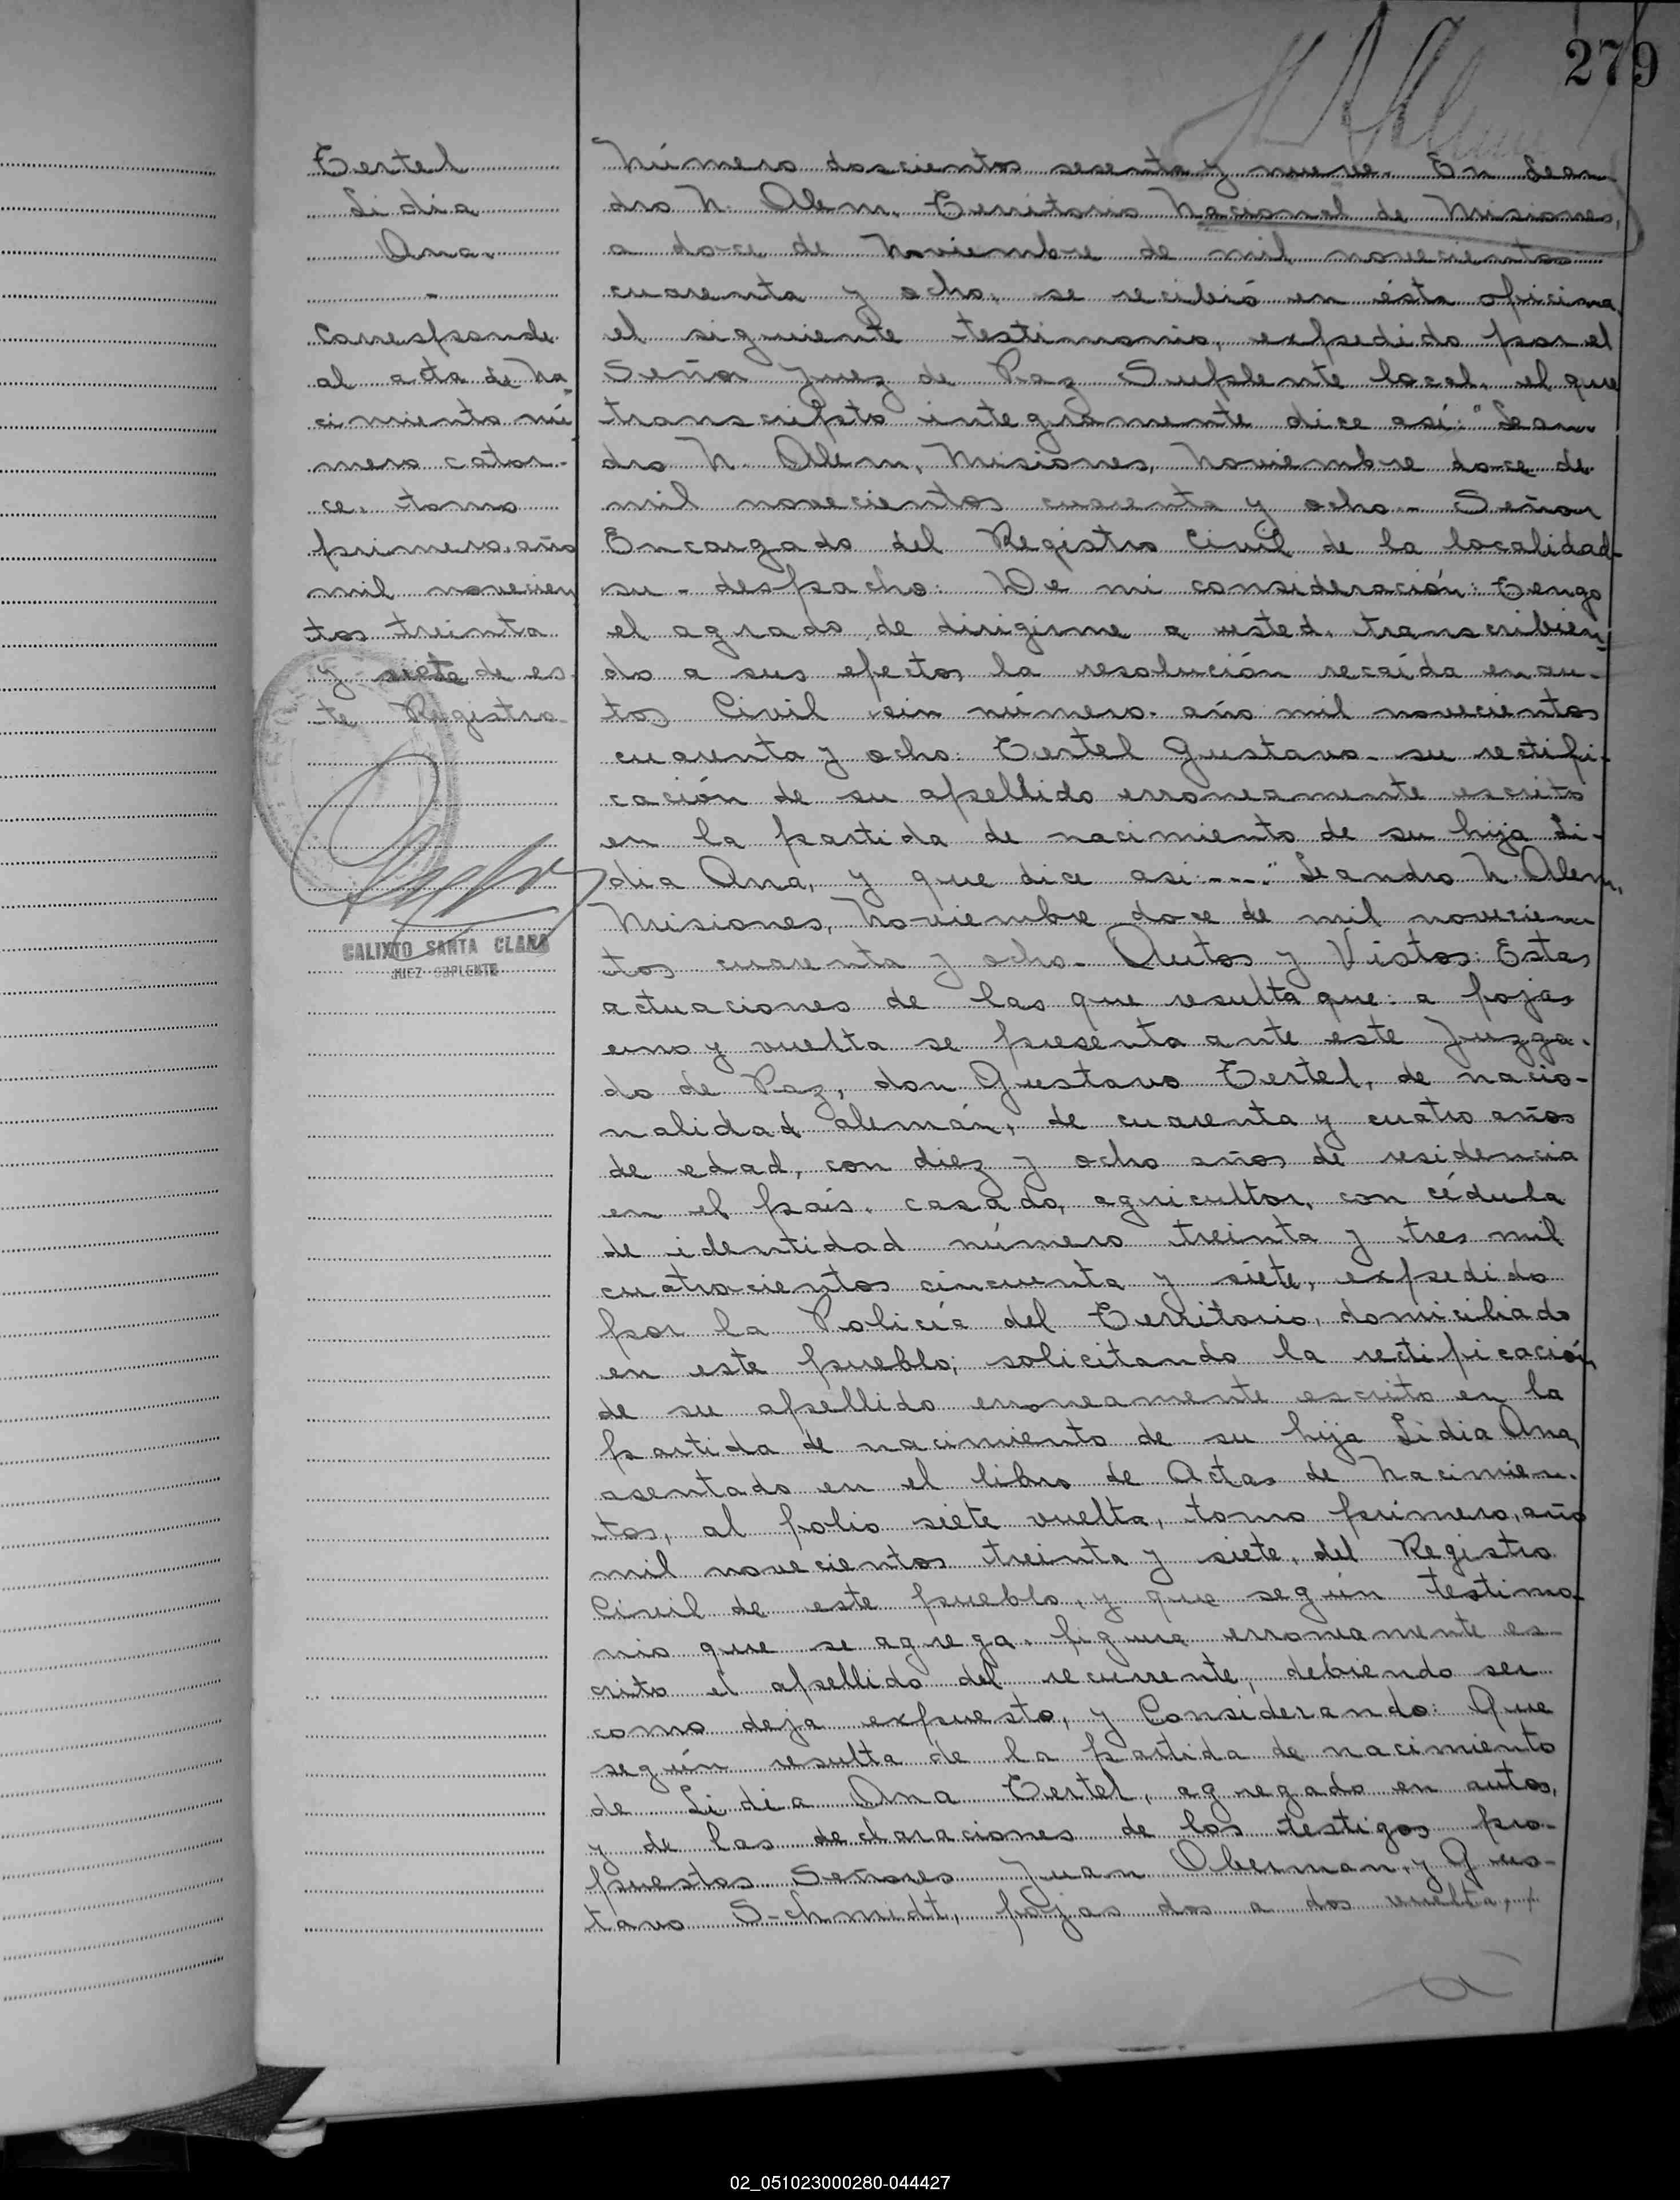 279
Tertel
Lidia
Ana.
-
Corresponde
al acta de Na-
cimiento nú-
mero cator-
ce, tomo
primero, año
mil novecien
tos treinta
y siete de es-
te Registro-
CALIXTO SANTA CLARA
JUEZ SUPLENTE
Número doscientos sesenta y nueve. En Lean-
dro N. Alem, Territorio Nacional de Misiones,
a doce de Noviembre de mil novecientos
cuarenta y ocho, se recibió en ésta oficina,
el siguiente testimonio, expedido por el
Señor Juez de Paz Suplente local, el que
transcripto integramente dice así: "Lean-
dro N. Alem, Misiones, Noviembre doce de
mil novecientos cuarenta y ocho.- Señor
Encargado del Registro Civil de la localidad-
su - despacho: De mi consideración: Tengo
el agrado de dirigirme a usted, transcribien-
do a sus efectos la resolución recaída en au-
tos Civil sin número- año mil novecientos
cuarenta y ocho: Tertel Gustavo- su rectifi-
cación de su apellido erroneamente escrito
en la partida de nacimiento de su hija Li-
dia Ana, y que dice asi:---:" Leandro N. Alem,
Misiones, Noviembre doce de mil novecien-
tos cuarenta y ocho.- Autos y Vistos: Estas
actuaciones de las que resulta que: a fojas
uno y vuelta se presenta ante este Juzga-
do de Paz, don Gustavo Tertel, de nacio-
nalidad alemán, de cuarenta y cuatro años
de edad, con diez y ocho años de residencia
en el país, casado, agricultor, con cédula
de identidad número treinta y tres mil
cuatrocientos cincuenta y siete, expedido
por la Policía del Territorio, domiciliado
en este pueblo; solicitando la rectificación
de su apellido erroneamente escrito en la
partida de nacimiento de su hija Lidia Ana,
asentado en el libro de Actas de Nacimien-
tos, al folio siete vuelta, tomo primero, año
mil novecientos treinta y siete, del Registro
Civil de este pueblo, y que según testimo-
nio que se agrega, figura erroneamente es-
crito el apellido del recurrente, debiendo ser
como deja expuesto, y Considerando: Que
según resulta de la partida de nacimiento
de Lidia Ana Tertel, agregado en autos,
y de las declaraciones de los testigos pro-
puestos Señores Juan Oberman, y Gus-
tavo Schmidt, fojas dos a dos vuelta,
02_051023000280-044427